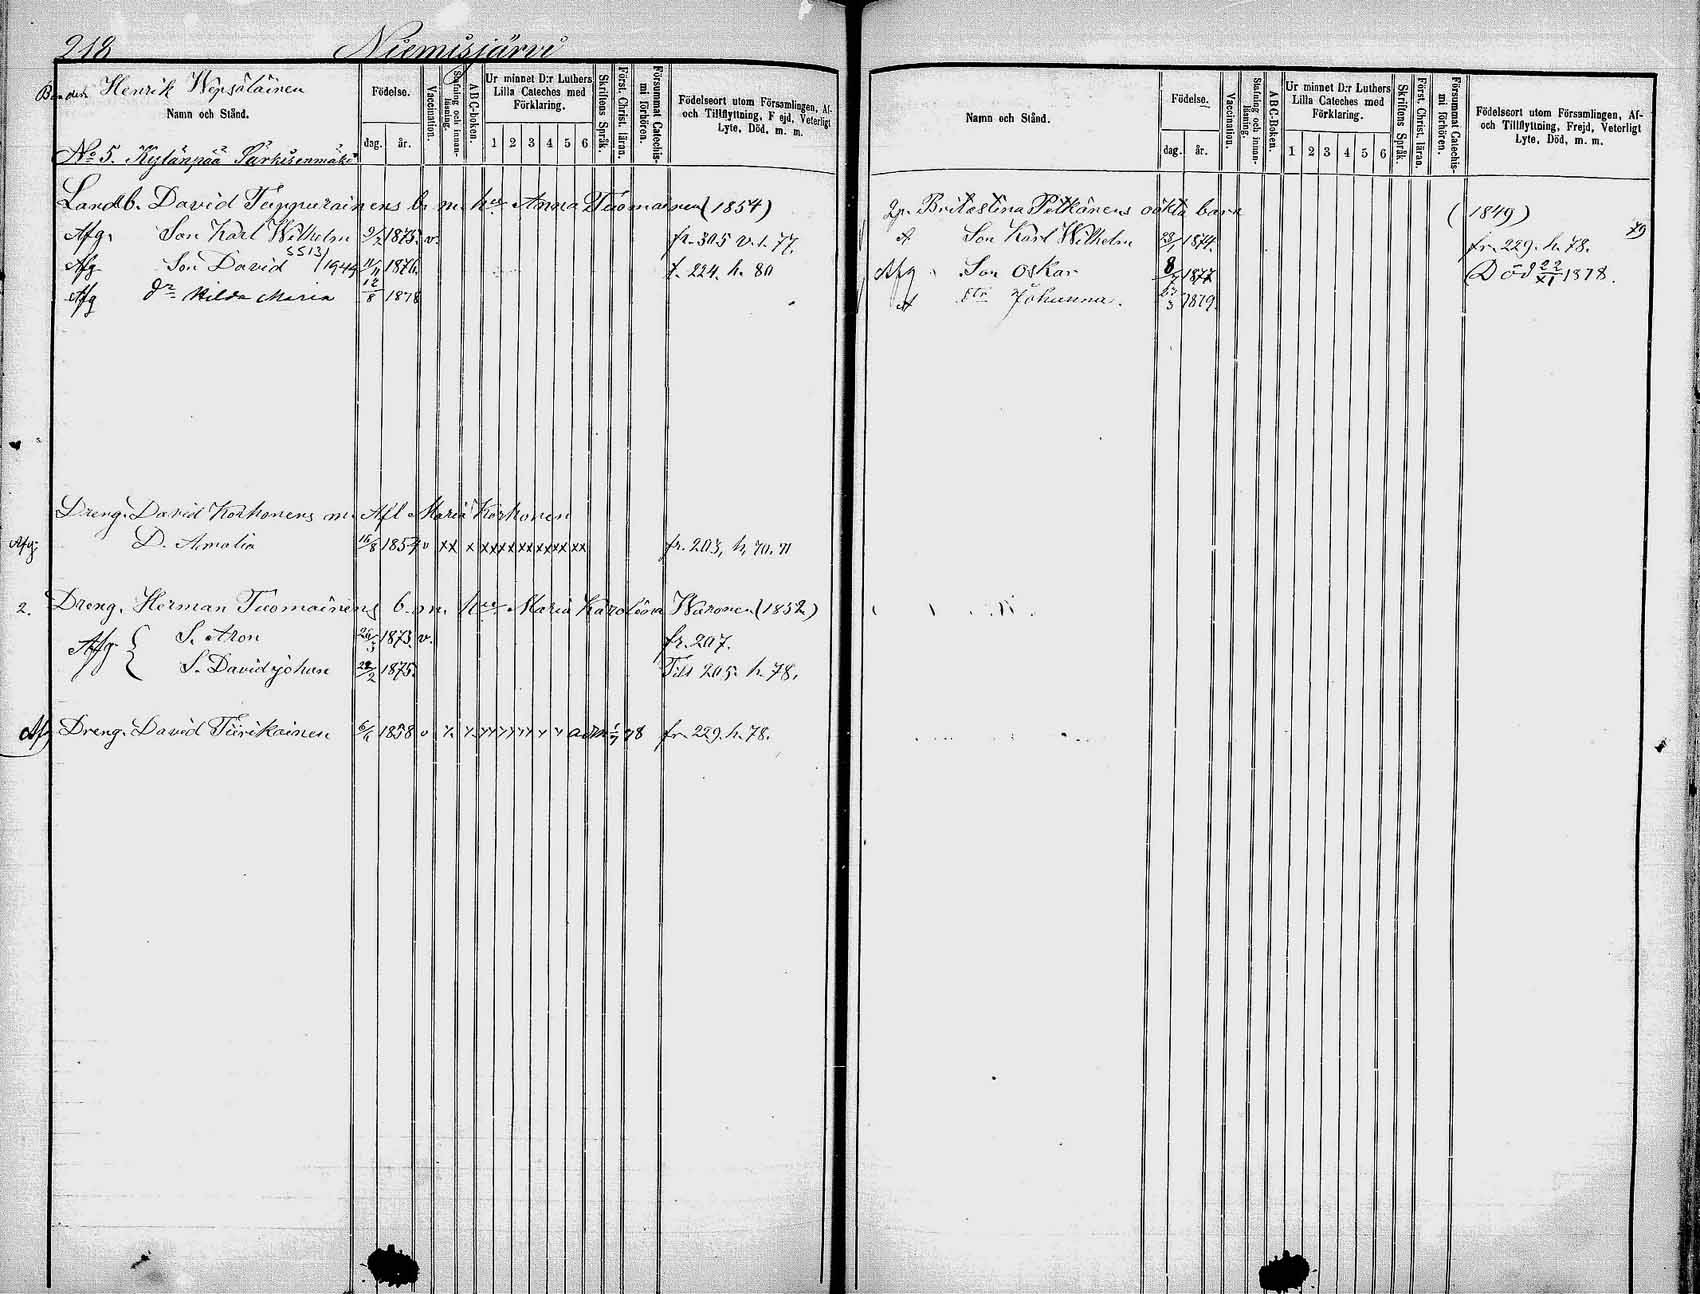 218 Niemisjärvi
Bonden Henrik Wepsäläinen
Namn och Stånd.
Födelse.
dag. år.
Vaccination.
Stafning och innan-läsning.
A B C-boken.
Ur minnet D:r Luthers Lilla Cateches med Förklaring.
1 2 3 4 5 6
Skriftens Språk.
Först. Christ. läran.
Försummat Catechis-mi förhören.
Födelseort utom Församlingen, Af- och Tillflyttning, Frejd, Veterligt Lyte, Död, m. m.
No 5. Kylänpää Särkisenmäki
Landb. David Tuppurainens b. m. hu Anna Tuomainen (1854)
Afg. Son Karl Wilhelm 9/2 1875. v. fr. 305 v. 1. 77.
Afg Son David 11/11 1876. t. 224. h. 80
Afg dr Hilda Maria 12/8 1878
Dreng. David Korhonens m. Afl. Maria Korhonen
Afg. D. Amalia 16/8 1854 v xx x xxxxxxxxxxxx fr. 203, h. 70. 71
2. Dreng. Herman Tuomainens b. m. hu Maria Karolina Waronen (1852)
Afg { S. Aron 26/3 1873. v. fr. 207.
S. David Johan 28/2 1875. Till 205. h. 78.
Afg Dreng. David Tiirikainen 6/6 1858 v fr. 229. h. 78.
Namn och Stånd.
Födelse.
dag. år.
Vaccination.
Stafning och innan-läsning.
A B C-Boken.
Ur minnet D:r Luthers Lilla Cateches med Förklaring.
1 2 3 4 5 6
Skriftens Språk.
Först. Christ. läran.
Försummat Catechis-mi förhören.
Födelseort utom Församlingen, Af- och Tillflyttning, Frejd, Veterligt Lyte, Död, m. m.
Brita Stina Pitkänens oäkta barn (1849) 79
A Son Karl Wilhelm 23/1 1874. fr. 229. h. 78.
Afg. Son Oskar 8/7 1877 Död 22/XI 1878.
A dtr Johanna. 1879.